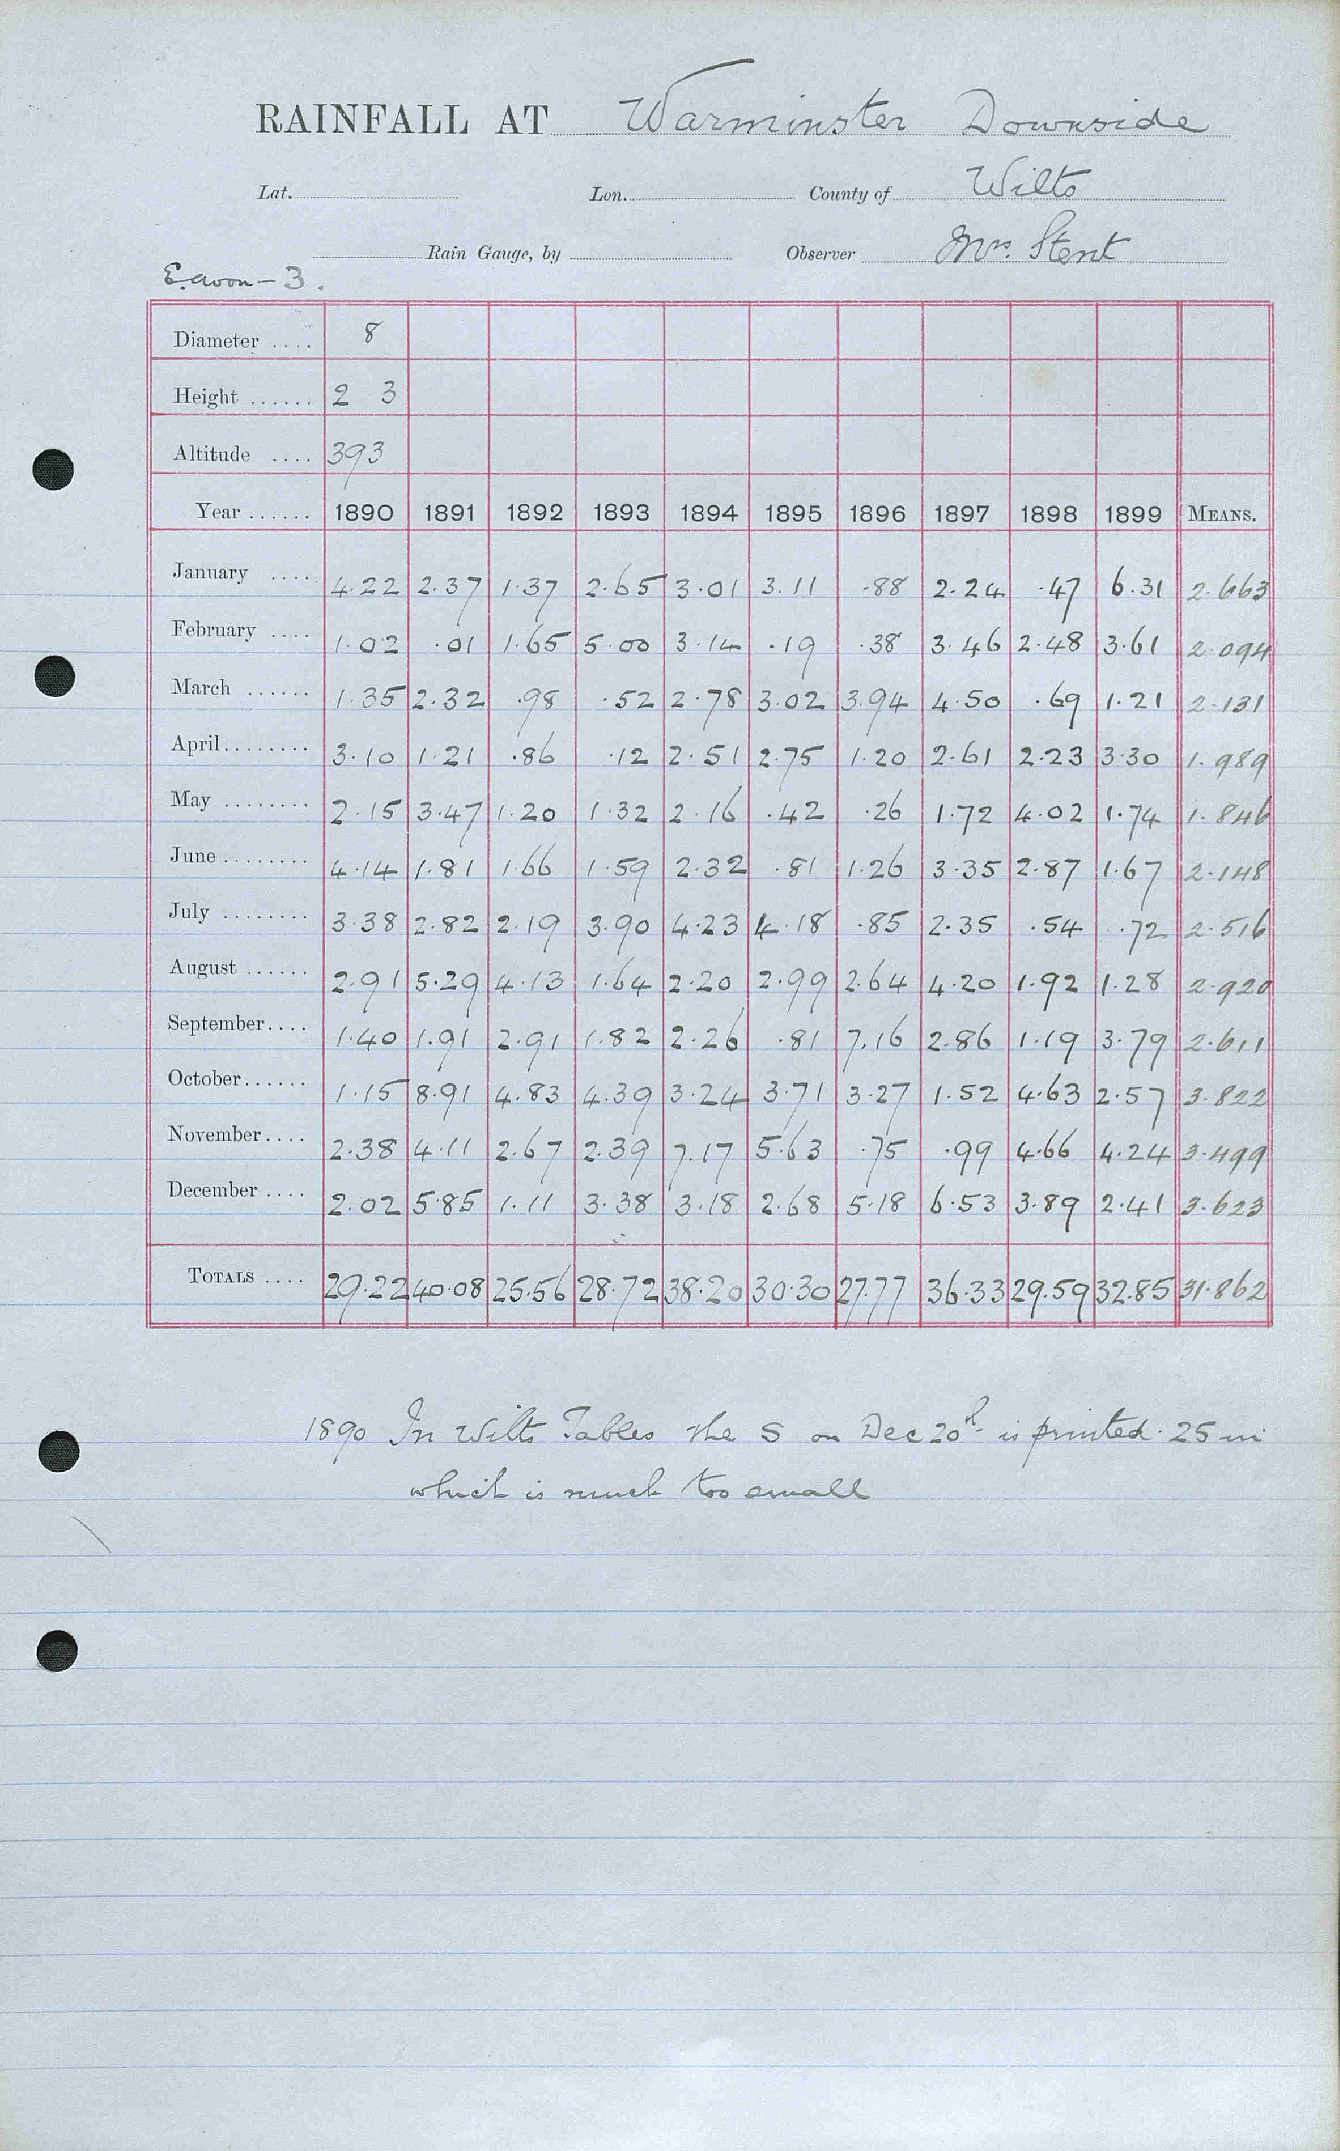 RAINFALL AT Warminster Downside
Lat. Lon. County of Wilts
Rain Gauge, by Observer Mrs. Stent
E. avon - 3.
Diameter .... 8
Height ...... 2 3
Altitude .... 393
Year ...... 1890 1891 1892 1893 1894 1895 1896 1897 1898 1899 MEANS.
January .... 4.22 2.37 1.37 2.65 3.01 3.11 .88 2.24 .47 6.31 2.663
February .... 1.02 .01 1.65 5.00 3.14 .19 .38 3.46 2.48 3.61 2.094
March ...... 1.35 2.32 .98 .52 2.78 3.02 3.94 4.50 .69 1.21 2.131
April........ 3.10 1.21 .86 .12 2.51 2.75 1.20 2.61 2.23 3.30 1.989
May ........ 2.15 3.47 1.20 1.32 2.16 .42 .26 1.72 4.02 1.74 1.846
June ........ 4.14 1.81 1.66 1.59 2.32 .81 1.26 3.35 2.87 1.67 2.148
July ........ 3.38 2.82 2.19 3.90 4.23 4.18 .85 2.35 .54 .72 2.516
August ...... 2.91 5.29 4.13 1.64 2.20 2.99 2.64 4.20 1.92 1.28 2.920
September.... 1.40 1.91 2.91 1.82 2.26 .81 7.16 2.86 1.19 3.79 2.611
October...... 1.15 8.91 4.83 4.39 3.24 3.71 3.27 1.52 4.63 2.57 3.822
November.... 2.38 4.11 2.67 2.39 7.17 5.63 .75 .99 4.66 4.24 3.499
December .... 2.02 5.85 1.11 3.38 3.18 2.68 5.18 6.53 3.89 2.41 3.623
TOTALS .... 29.22 40.08 25.56 28.72 38.20 30.30 27.77 36.33 29.59 32.85 31.862
1890 In Wilts Tables the S on Dec 20th is printed .25 in
which is much too small